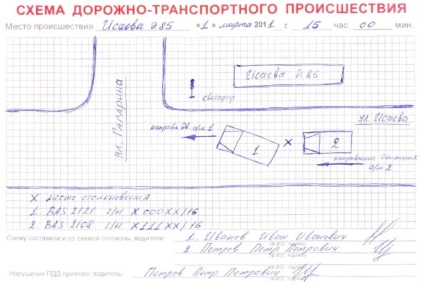 СХЕМА ДОРОЖНО-ТРАНСПОРТНОГО ПРОИСШЕСТВИЯ
Место происшествия Исаева д85 «1» марта 2011 г. 15 час. 00 мин.
Исаева д85
светофор
ул. Гагарина
ул. Исаева
направл. дв. а/м 1
1
X
2
направление движения а/м 2
X место столкновения
1 ВАЗ 2121 г/н Х000ХХ/16
2 ВАЗ 2108 г/н Х111ХХ/16
Схему составили и со схемой согласны: водители: 1. Иванов Иван Иванович
2 Петров Петр Петрович
Нарушение ПДД признаю: водитель: Петров Петр Петрович